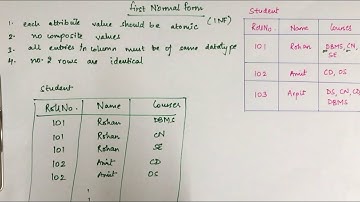 First Normal Form
1. each attribute value should be atomic (1NF)
2. no composite values
3. all entries in column must be of same datatype
4. no 2 rows are identical
Student
RollNo. Name Courses
101 Rohan DBMS
101 Rohan CN
101 Rohan SE
102 Amit CD
102 Amit OS
Student
RollNo. Name Courses
101 Rohan DBMS, CN,
SE
102 Amit CD, OS
103 Arpit DS, CN, CD
DBMS